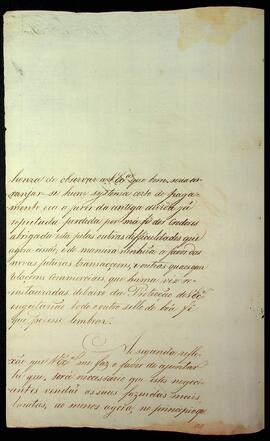 de observar a V.Exª que bem seria ar-
ranjar-se hum systema certo de paga-
mento e a favor da antiga divida já
reputada perdida por má fé dos
abrigada está pelas outras difficuldades que
agora essa, e de maneira nenhuma a favor das
novas futuras transacçoens, e outras quaes quer
commerciaes, que huma vez
restauradas debaixo da Protecção de V.Exª
todo outro sello de boa fé
que podesse lembrar.
A segunda refle-
xão que V.Exª me faz o favor de ajuntar
he que, será necessario que estes negoci-
antes vendão as suas fazendas mais
baratas, ao menos agora, no principio